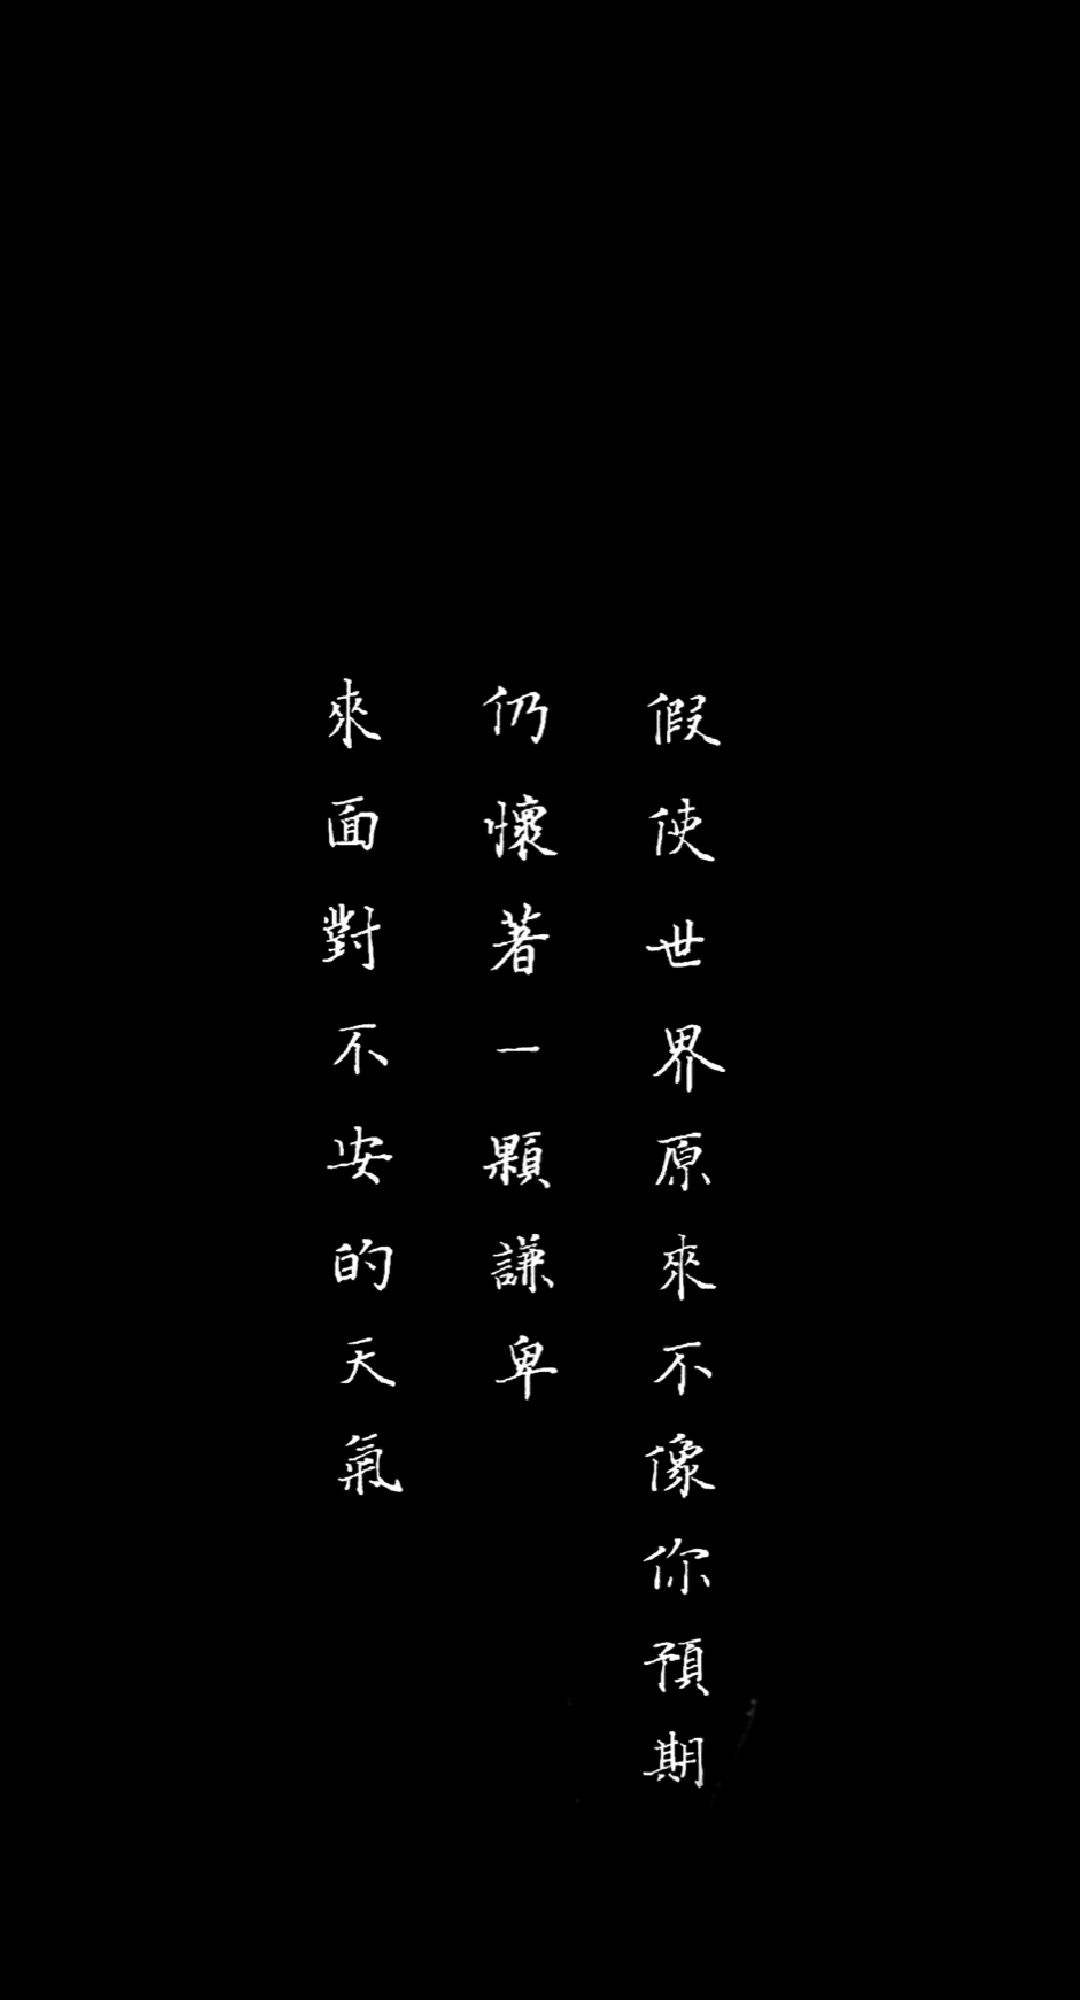 假使世界原來不像你預期
仍懷著一顆謙卑
來面對不安的天氣